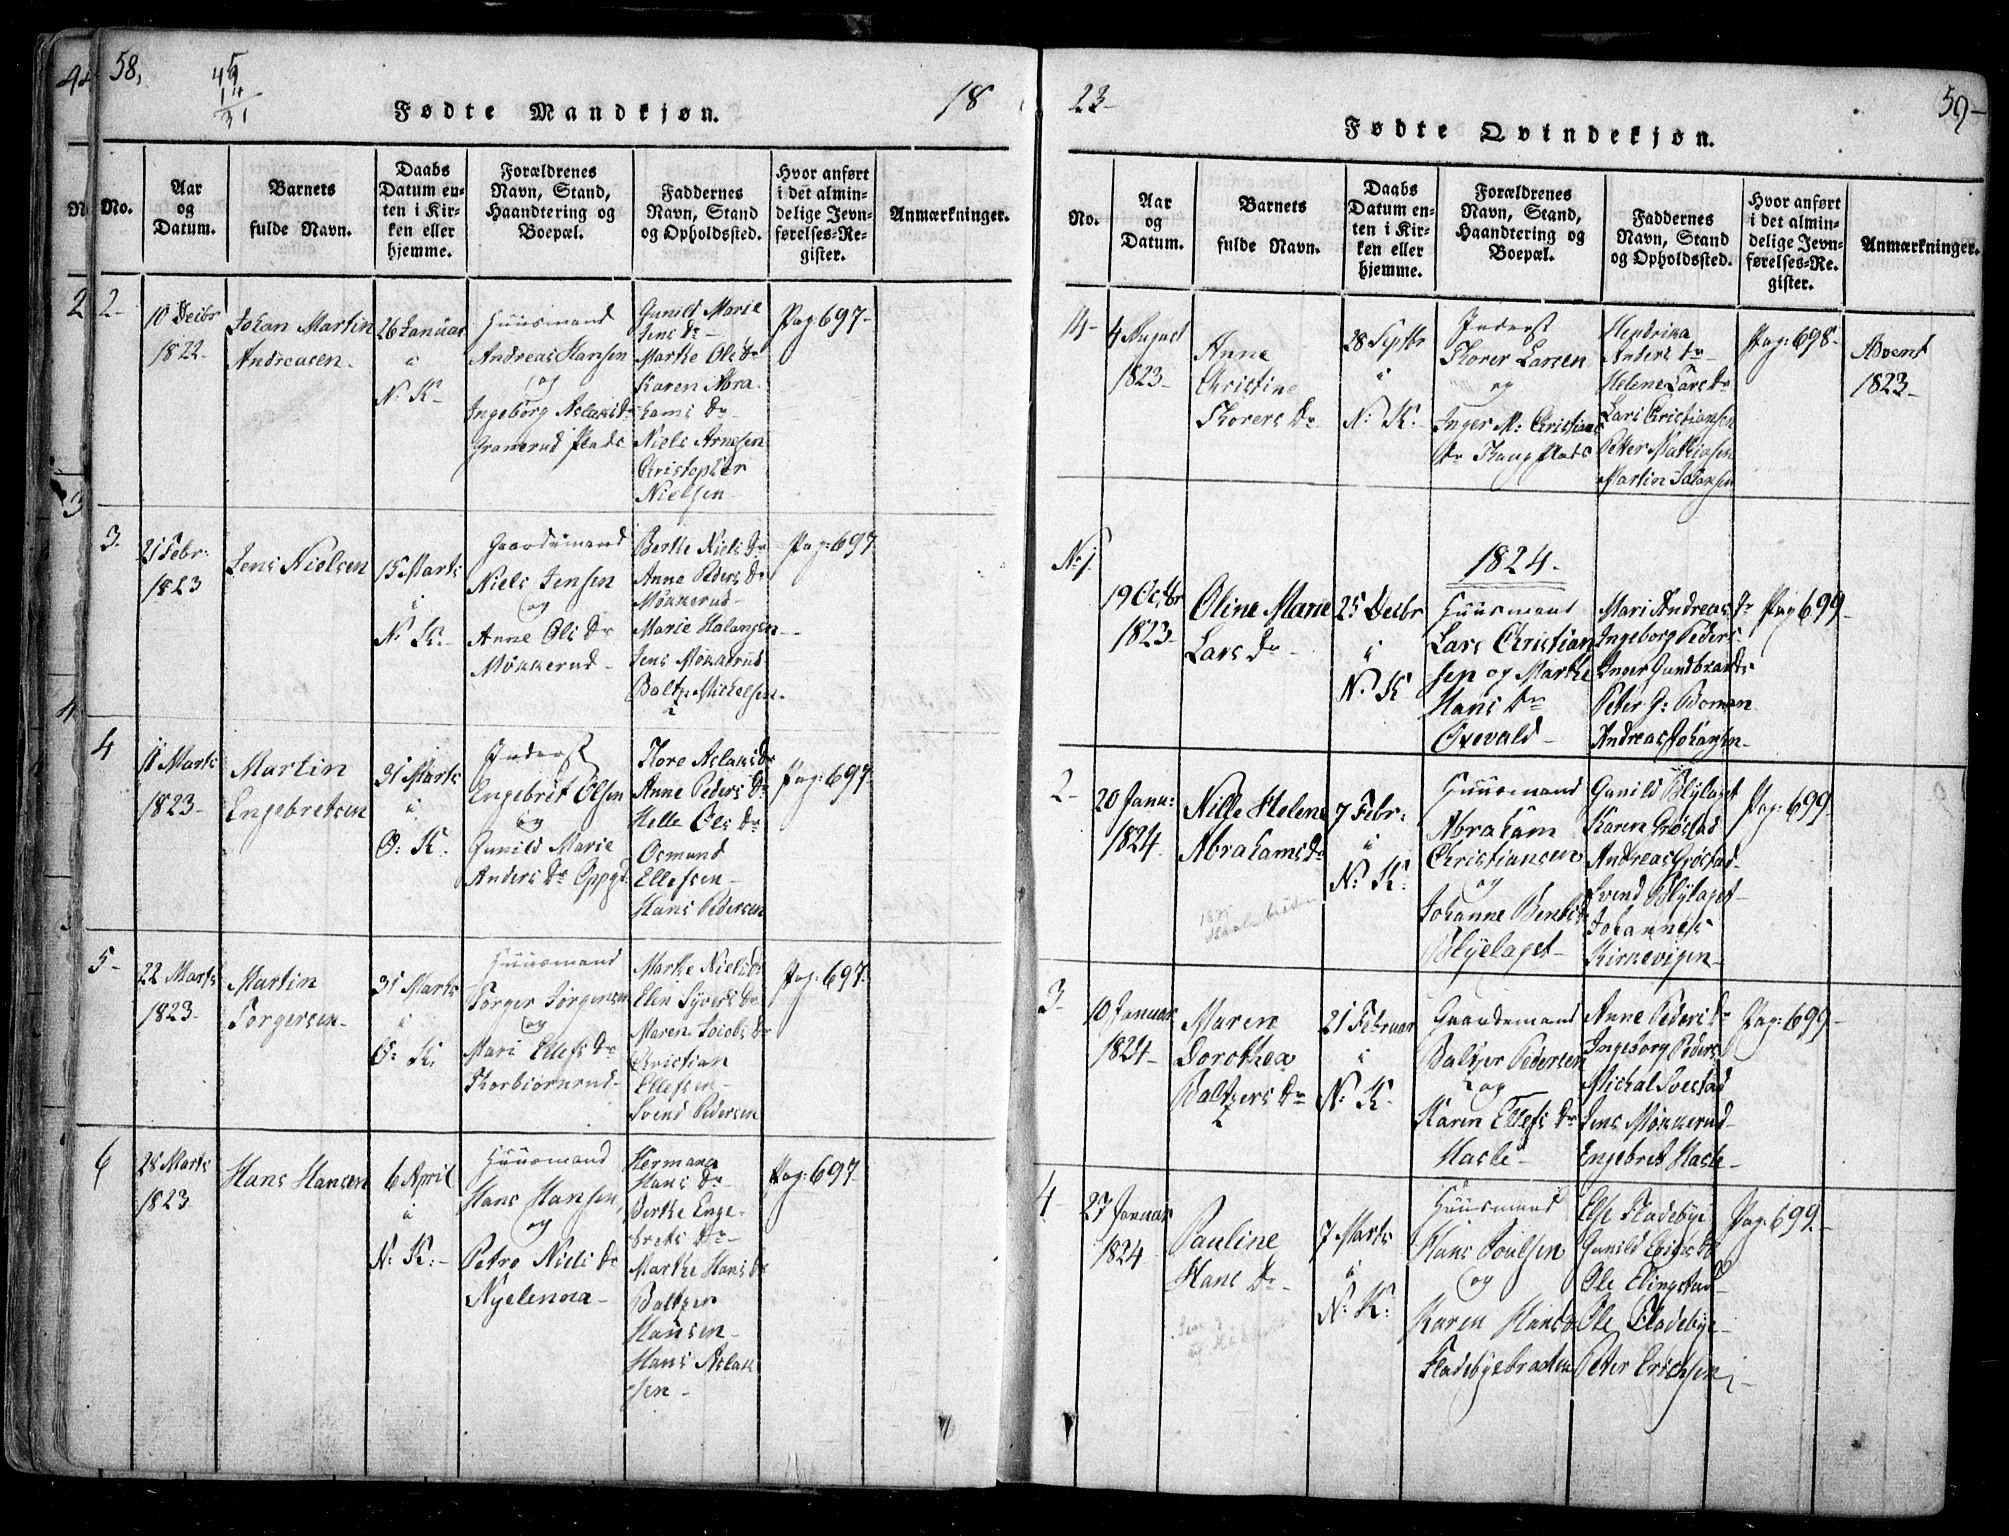 58.
45
14
31
Fødte Mandkjøn.
18
No.
Aar og Datum.
Barnets fulde Navn.
Daabs Datum enten i Kirken eller hjemme.
Forældrenes Navn, Stand, Haandtering og Boepæl.
Faddernes Navn, Stand og Opholdssted.
Hvor anført i det almindelige Jevnførelses-Register.
Anmærkninger.
2-
10 Decbr
1822-
Johan Martin
Andreasen-
26 Januar
i
N. K-
Huusmand
Andreas Hansen
og
Ingeborg Aslaksdr
Granerud Plads
Gunild Marie
Jens Dr-
Marthe Ols Dr
Karen Abra-
hams Dr-
Niels Arnesen
Christopher
Nielsen-
Pag 697-
3.
21 Febr:
1823
Jens Nielsen
15 Marts
i
N. K.-
Gaardemand
Niels Jensen
og
Anne Ols Dr
Møkkerud-
Berthe Niels Dr
Anne Peders Dr
Møkkerud-
Marie Halangen-
Jens Møkkerud
Baltz. Michelsen-
Pag: 697
4
11 Marts
1823-
Martin
Engebretsen
31 Marts
i
O: K.
Inderst
Engebret Olsen
og
Gunild Marie
Anders Dr Oppgd
Thore Aslaks Dr
Anne Peders Dr
Helle Ols Dr
Osmund
Ellefsen-
Hans Pedersen
Pag: 697-
5-
22 Marts
1823-
Martin
Torgersen-
31 Marts
i
O: K.
Huusmand
Torger Jørgensen
og
Mari Ellefs Dr
Thorbiørnrud-
Marthe Niels Dr
Elin Syvers Dr
Maren Jacobs Dr
Christian
Ellefsen-
Svend Pedersen
Pag: 697-
6
28 Marts
1823
Hans Hansen
6 April
i
N: K:-
Huusmand
Hans Hansen,
og
Petro Niels Dr
Nyelenna-
Hermana
Hans Dr-
Berthe Enge-
brets Dr-
Marthe Hans Dr
Baltzer
Hansen-
Hans Aslak
sen-
Pag: 697-
23-
59-
Fødte Qvindekjøn.
No.
Aar og Datum.
Barnets fulde Navn.
Daabs Datum enten i Kirken eller hjemme.
Forældrenes Navn, Stand, Haandtering og Boepæl.
Faddernes Navn, Stand og Opholdssted.
Hvor anført i det almindelige Jevnførelses-Register.
Anmærkninger.
14-
4 August
1823-
Anne
Christine
Thorers Dr
28 Septbr
i
N: K.
Inderst
Thorer Larsen
og
Inger M: Christians
Dr Haug Plads
Hendrika
Anders Dr-
Helene Lars Dr
Lars Christiansen
Petter Mathiasen
Martin Johansen
Pag: 698-
Advent
1823-
1824-
No 1
19 Octbr
1823-
Oline Marie
Lars Dr-
25 Decbr
i
N. K
Huusmand
Lars Christian
sen og Marthe
Hans Dr
Oxevald-
Mari Andreas Dr
Ingeborg Peders-
Inger Gundbrands
Peter G: Boman
Andreas Johansen-
Pag 699-
2-
20 Janu:
1824-
Nille Helene
Abrahams Dr
7 Febr:
i
N: K:
Huusmand
Abraham
Christiansen
og
Johanne Bents Dr
Blylaget-
Gunild Blylaget
Karen Grøstad
Andreas Grøstad-
Svend Blylaget-
Johannes
Kirkevigen-
Pag: 699-
3-
10 Januar
1824-
Maren
Dorothea
Baltzers Dr
21 Februar
i
N: K-
Gaardemand
Baltzer Pedersen
og
Karen Ellefs Dr
Hasle-
Anne Peders Dr
Ingeborg Peders
Michal Svestad
Jens Møkkerud-
Engebret Hasle-
Pag: 699-
4-
27 Januar
1824
Pauline
Hans Dr-
7 Marts
i
N: K:
Huusmand
Hans Poulsen
og
Karen Hans Dr
Fladebyebraaten
Else Fladebye
Gunild Erigs Dr
Ole Elingstad-
Ole Fladebye-
Peter Erichsen-
Pag: 699-